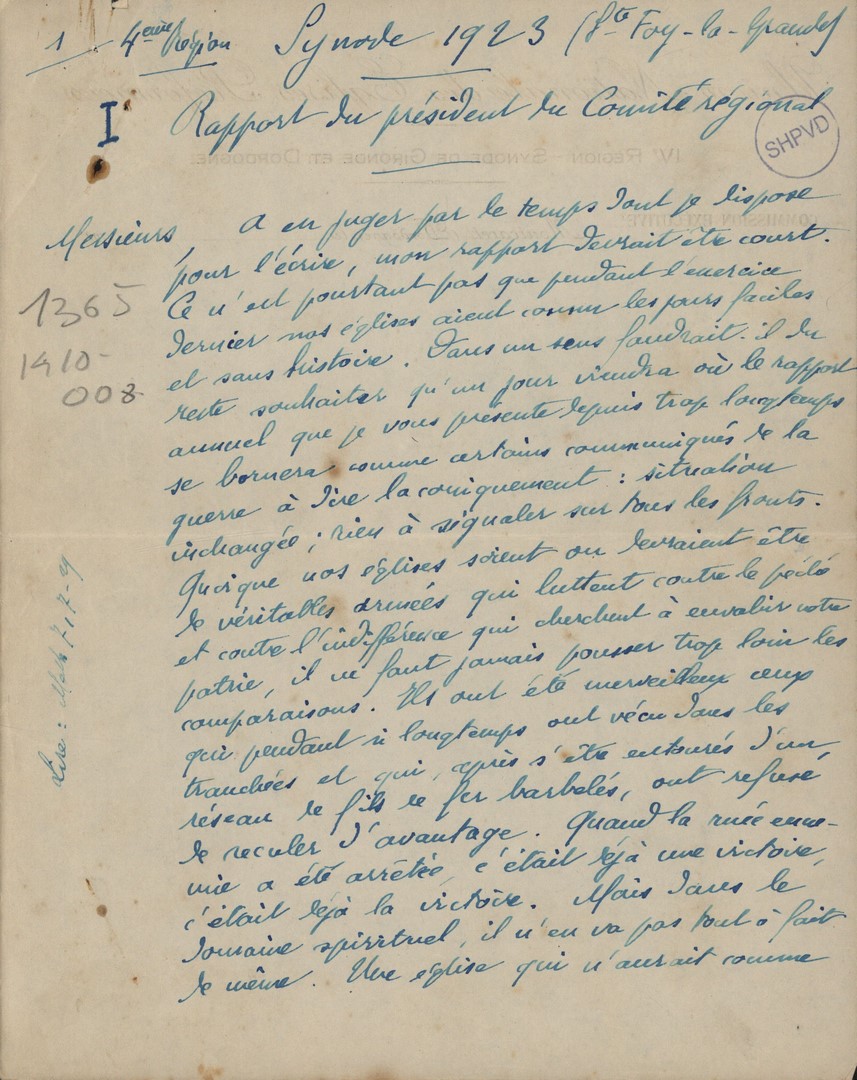 1 4ème Région Synode 1923 (Ste Foy-la-Grande)
I Rapport du président du Comité régional
SHPVD
IVe RÉGION - SYNODE DE GIRONDE ET DORDOGNE
COMMISSION EXÉCUTIVE
Messieurs, A en juger par le temps dont je dispose
pour l'écrire, mon rapport devrait être court.
Ce n'est pourtant pas que pendant l'exercice
dernier nos églises aient connu les jours faciles
et sans histoire. Dans un sens faudrait-il du
reste souhaiter qu'un jour viendra où le rapport
annuel que je vous présente depuis trop longtemps
se bornera comme certains communiqués de la
guerre à dire laconiquement : situation
inchangée ; rien à signaler sur tous les fronts.
Quoique nos églises soient ou devraient être
de véritables armées qui luttent contre le péché
et contre l'indifférence qui cherchent à envahir notre
patrie, il ne faut jamais pousser trop loin les
comparaisons. Ils ont été merveilleux ceux
qui pendant si longtemps ont vécu dans les
tranchées et qui, après s'être entourés d'un
réseau de fils de fer barbelés, ont refusé
de reculer d'avantage. Quand la ruée enne-
mie a été arrêtée, c'était déjà une victoire,
c'était déjà la victoire. Mais dans le
domaine spirituel, il n'en va pas tout à fait
de même. Une église qui n'aurait comme
1365
1410-
008
Lire : Math 7 17-29